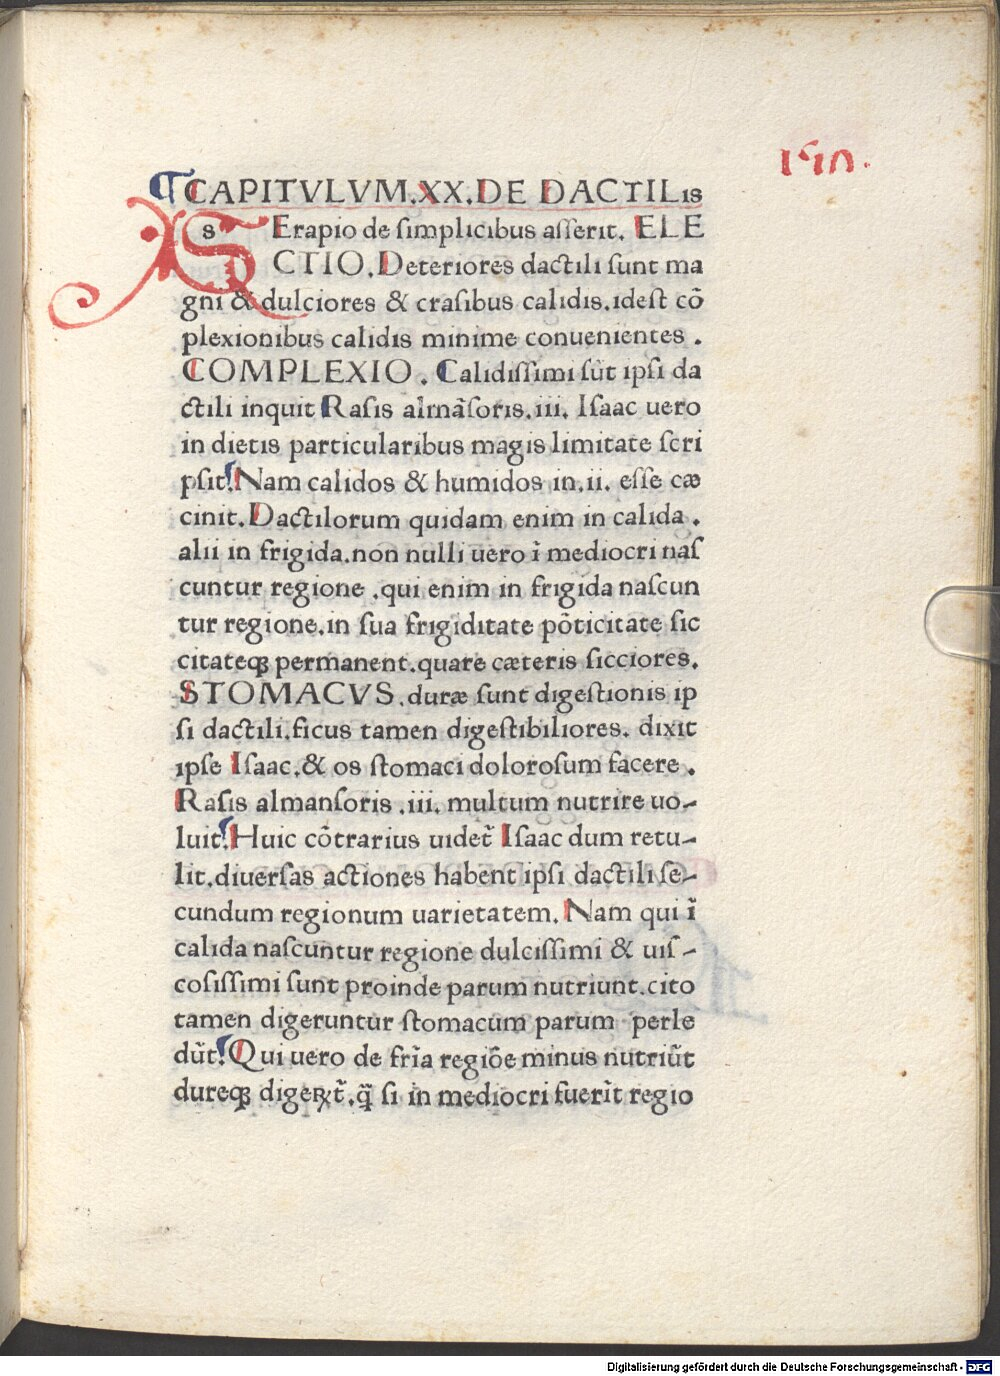 ¶CAPITVLVM.XX.DE DACTILis
sErapio de ſimplicibus aſſerit. ELE
CTIO.Deteriores dactili ſunt ma
gni & dulciores & craſibus calidis.ideſt cõ
plexionibus calidis minime conuenientes .
COMPLEXIO . Calidiſſimi ſũt ipſi da
ctili inquit Raſis almãſoris.iii. Iſaac uero
in dietis particularibus magis limitate ſcri
pſit.Nam calidos & humidos in.ii. eſſe cæ
cinit.Dactilorum quidam enim in calida .
alii in frigida.non nulli uero ĩ mediocri naſ
cuntur regione .qui enim in frigida naſcun
tur regione.in ſua frigiditate põticitate ſic
citateqꝫ permanent.quare cæteris ſicciores.
STOMACVS.duræ ſunt digeſtionis ip
ſi dactili.ficus tamen digeſtibiliores. dixit
ipſe Iſaac.& os ſtomaci doloroſum facere .
Raſis almanſoris .iii. multum nutrire uo-
luit.Huic cõtrarius uidet̃ Iſaac dum retu-
lit.diuerſas actiones habent ipſi dactili ſe-
cundum regionum uarietatem. Nam qui ĩ
calida naſcuntur regione dulciſſimi & uiſ-
coſiſſimi ſunt proinde parum nutriunt.cito
tamen digeruntur ſtomacum parum perle
dũt.Qui uero de fr̃ia regiõe minus nutriũt
dureqꝫ digerũt̃.q̃ ſi in mediocri fuerĩt regio
Digitalisierung gefördert durch die Deutsche Forschungsgemeinschaft - DFG